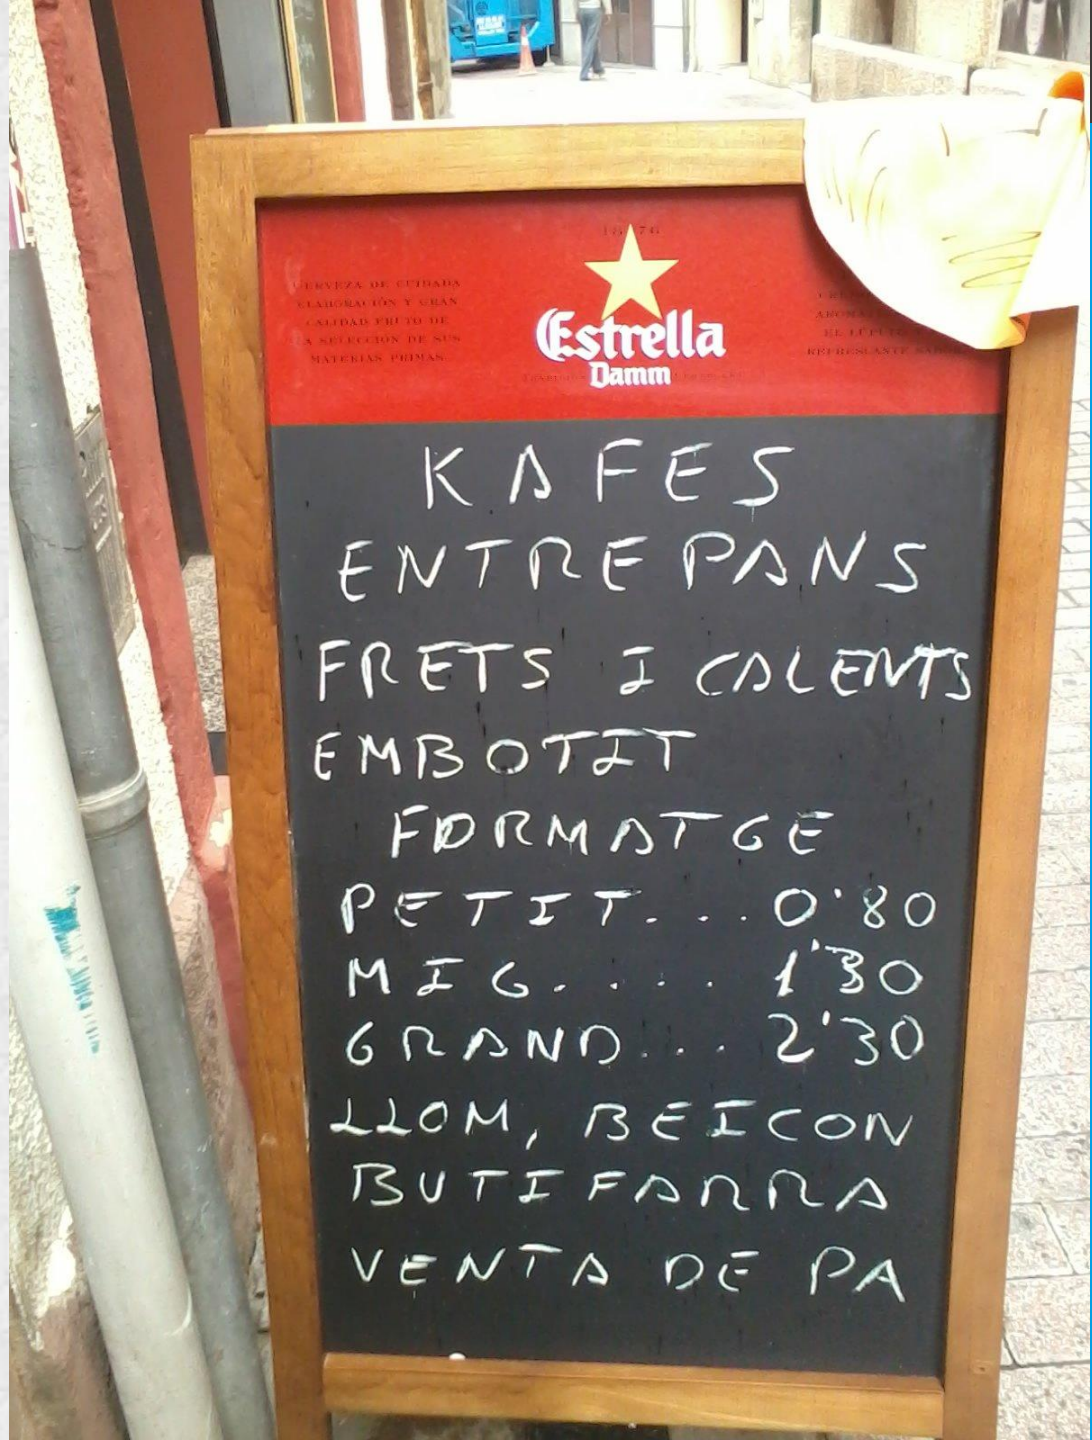 1876
CERVEZA DE CUIDADA
ELABORACIÓN Y GRAN
CALIDAD FRUTO DE
LA SELECCIÓN DE SUS
MATERIAS PRIMAS.
EL LÚPULO
REFRESCANTE
Estrella
Damm
KAFES
ENTREPANS
FRETS I CALENTS
EMBOTIT
FORMATGE
PETIT... 0'80
MIG..... 1'30
GRAND... 2'30
LLOM, BEICON
BUTIFARRA
VENTA DE PA